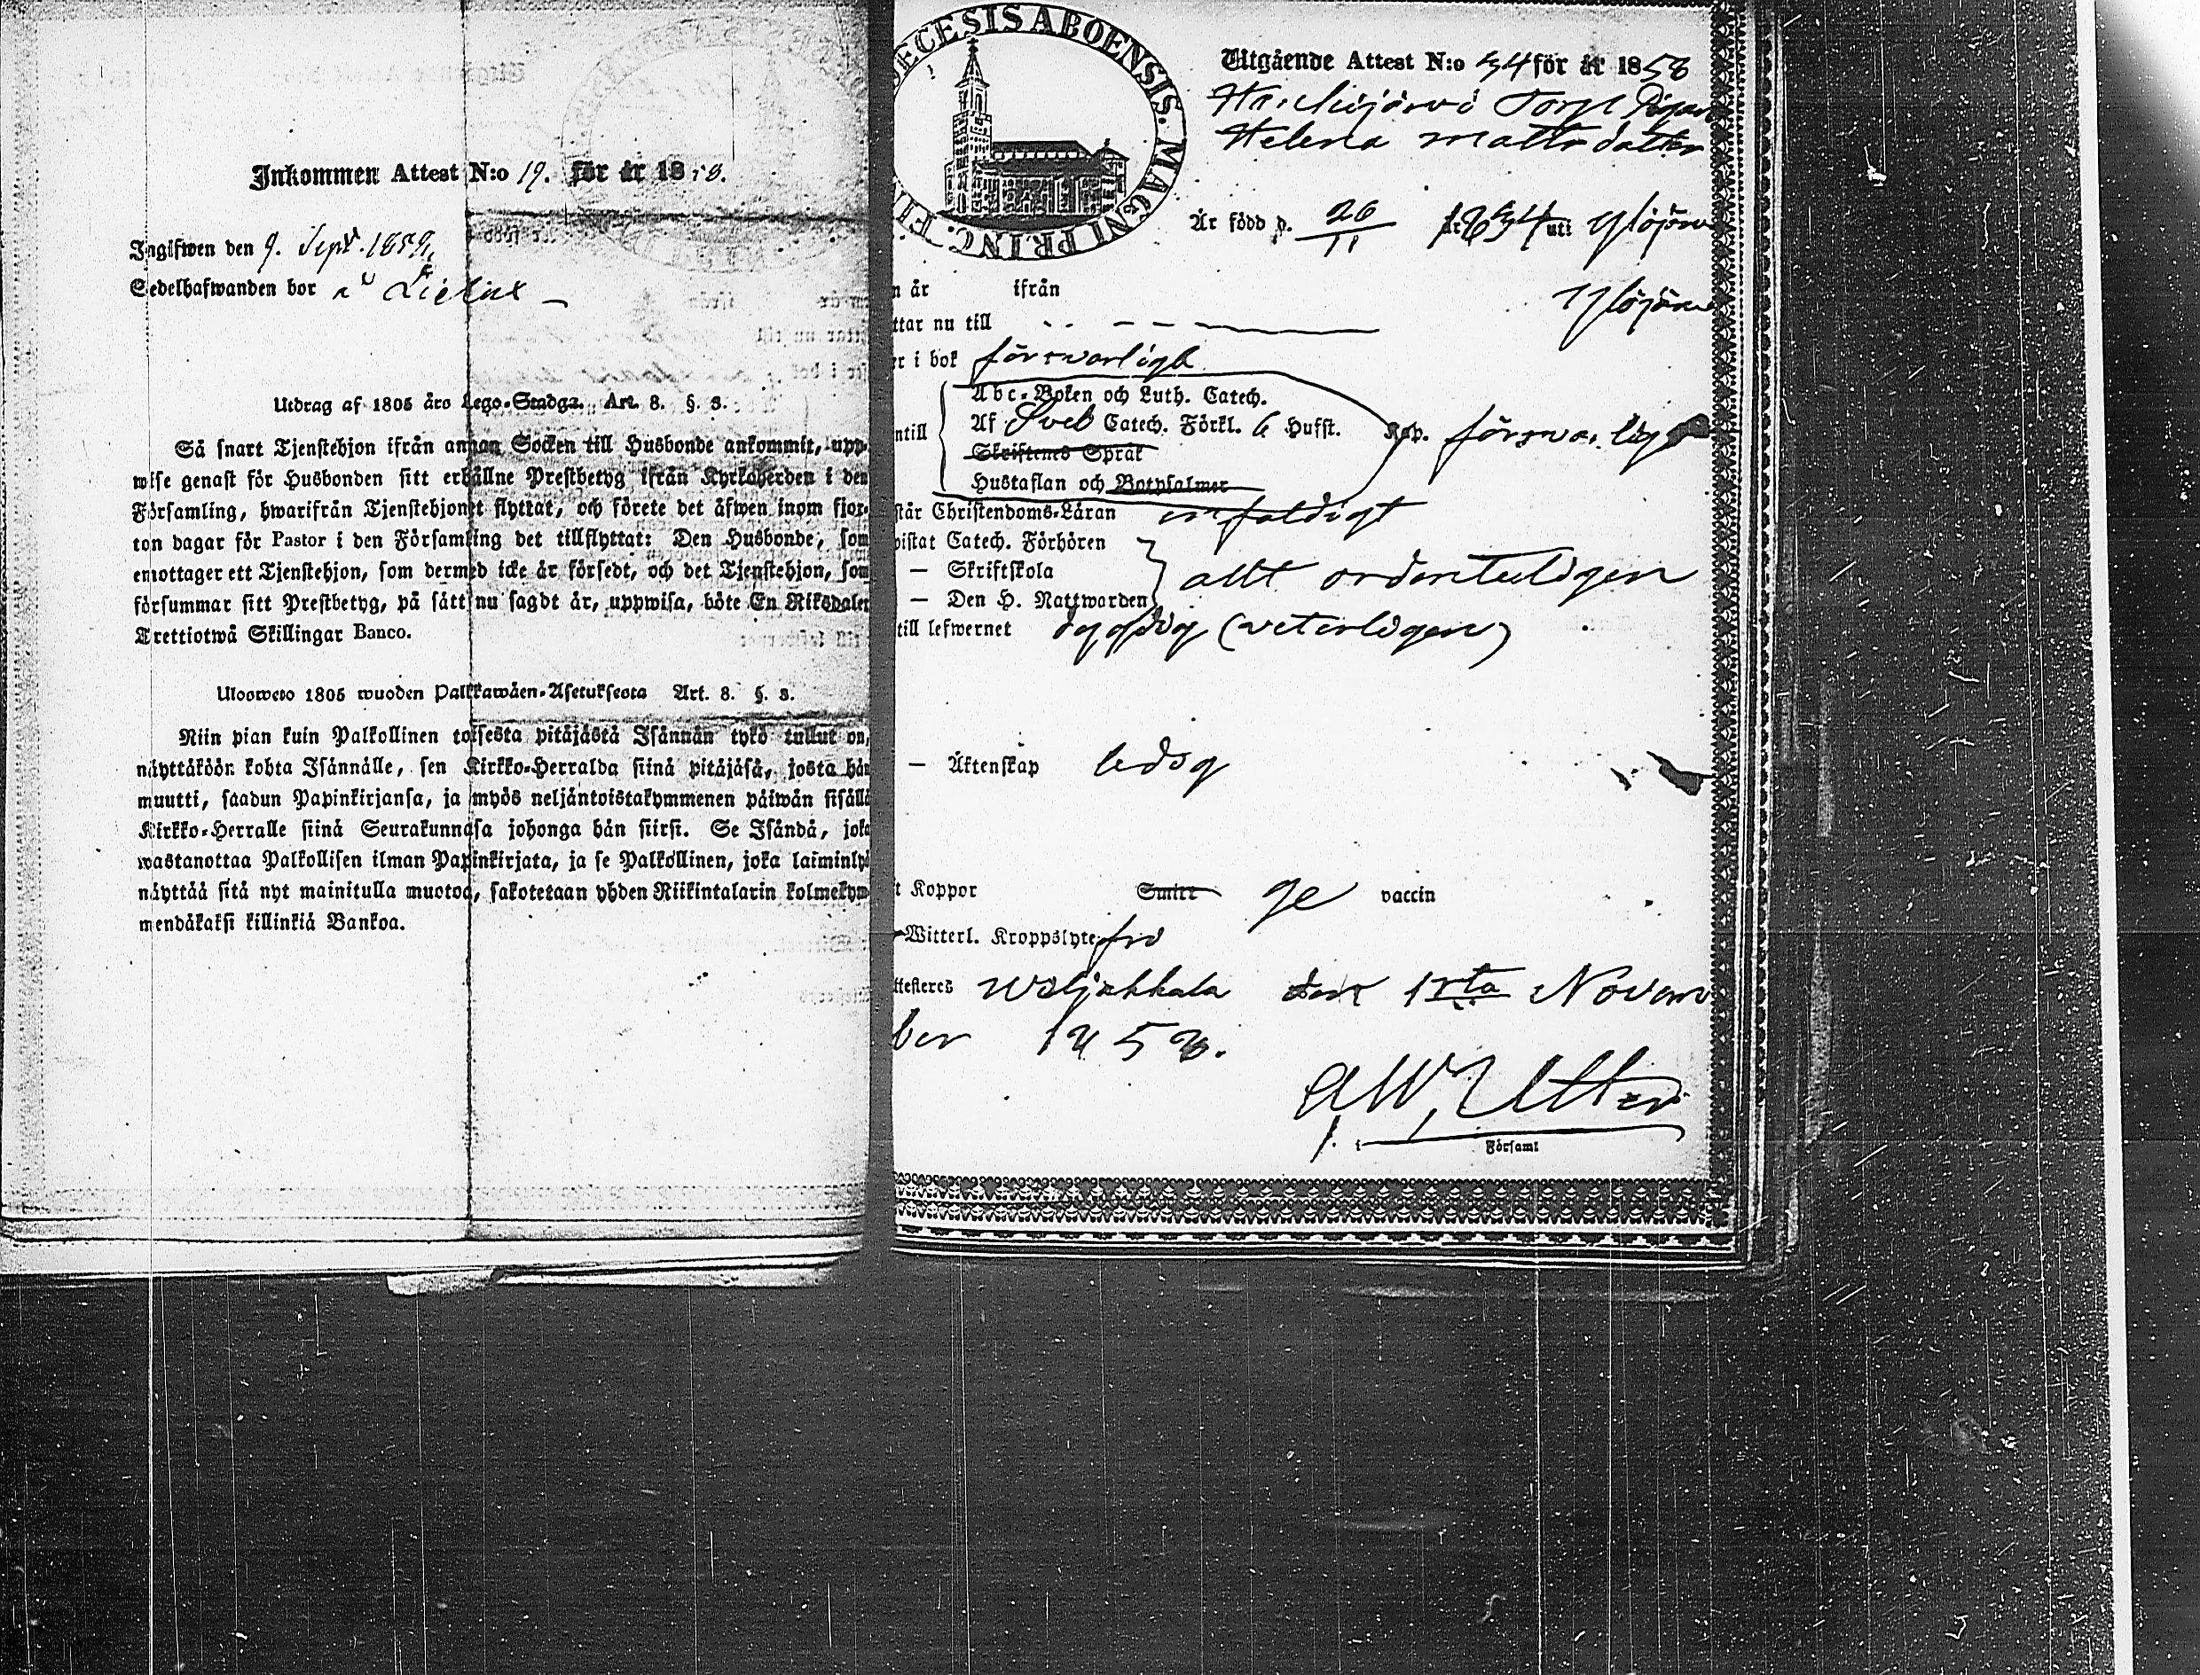 Inkommen Attest N:o 19. för år 1858.
Ingifwen den 9. Sept. 1859.
Sedelhafwanden bor å
Utdrag af 1805 års Lego-Stadga. Art. 8. §. 3.
Så snart Tjenstehjon ifrån annan Socken till Husbonde ankommit, upp-
wise genast för Husbonden sitt erhållne Prestbetyg ifrån Kyrkoherden i den
Församling, hwarifrån Tjenstehjonet flyttat, och förete det äfwen inom fjor-
ton dagar för Pastor i den Församling det tillflyttat: Den Husbonde, som
emottager ett Tjenstehjon, som dermed icke är försedt, och det Tjenstehjon, som
försummar sitt Prestbetyg, på sätt nu sagdt är, uppwisa, böte En Riksdaler
Trettiotwå Skillingar Banco.
Ulosweto 1805 wuoden Palkkawäen-Asetuksesta Art. 8. §. 3.
Niin pian kuin Palkollinen toisesta pitäjästä Isännän tykö tullut on,
näyttäköön kohta Isännälle, sen Kirkko-Herralda siinä pitäjäsä, josta hän
muutti, saadun Papinkirjansa, ja myös neljäntoistakymmenen päiwän sisällä
Kirkko-Herralle siinä Seurakunnasa johonga hän siirsi. Se Isändä, joka
wastanottaa Palkollisen ilman Papinkirjata, ja se Palkollinen, joka laiminlyö
näyttää sitä nyt mainitulla muotoa, sakotetaan yhden Riikintalarin kolmekym-
mendäkaksi killinkiä Bankoa.
DECESIS ABOENSIS. MAGNI PRINC. FIN
Utgående Attest N:o 34 för år 1858
Torp Pigan
Helena Mattsdotter
Är född d. 26/11 år 1834 uti Ylöjärvi
n år ifrån Ylöjärvi
ttar nu till
er i bok försvarligt
Abc-Boken och Luth. Catech.
Af Sveb Catech. Förkl. 6 Hufst.
ntill Rap. försvarligt
Skriftenes Språk
Hustaflan och Botpsalmer
står Christendoms-Läran enfaldigt
bistat Catech. Förhören
— Skriftskola allt ordenteligen
— Den H. Nattwarden
till lefwernet dygdig (veterligen)
— Äktenskap ledig
t Koppor Smitt ge vaccin
Witterl. Kroppslyte fri
ttesteres Wiljakkala den 13ta Novem
ber 1858.
A W Utter
p. i Församl